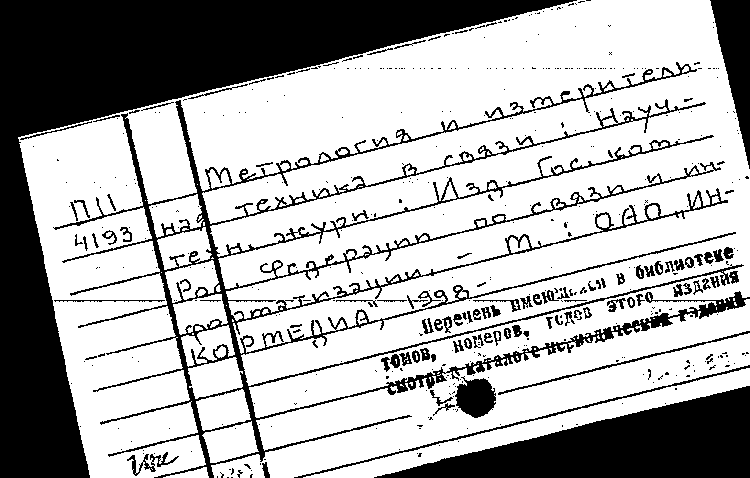 Метрология и измеритель-
П11
4193 ная техника в связи : Науч.-
техн. журн. : Изд. Гос. ком.
Рос. Федерации по связи и ин-
форматизации. – М. : ОАО „ИН-
КОРМЕДИА", 1998-
Перечень имеющихся в библиотеке
томов, номеров, годов этого издания
смотри в каталоге периодических изданий